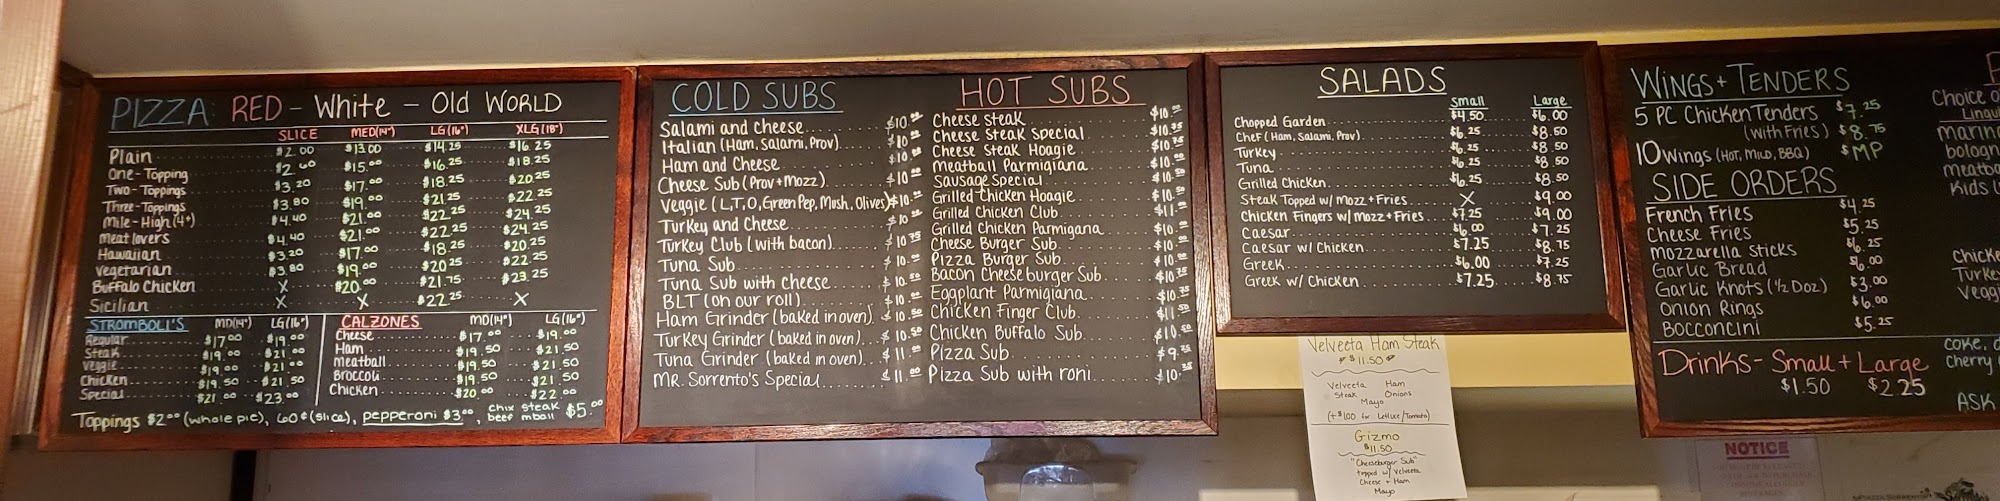 PIZZA: RED - White - Old WORLD
SLICE MED(14") LG(16") XLG(18")
Plain $2.00 $13.00 $14.25 $16.25
One-Topping $2.60 $15.00 $16.25 $18.25
Two-Toppings $3.20 $17.00 $18.25 $20.25
Three-Toppings $3.80 $19.00 $21.25 $22.25
Mile-High (4+) $4.40 $21.00 $22.25 $24.25
Meat lovers $4.40 $21.00 $22.25 $24.25
Hawaiian $3.20 $17.00 $18.25 $20.25
Vegetarian $3.80 $19.00 $20.25 $22.25
Buffalo Chicken X $20.00 $21.75 $23.25
Sicilian X X $22.25 X
STROMBOLI'S MD(14") LG(16")
Regular $17.00 $19.00
Steak $19.00 $21.00
Veggie $19.00 $21.00
Chicken $19.50 $21.50
Special $21.00 $23.00
CALZONES MD(14") LG(16")
Cheese $17.00 $19.00
Ham $19.50 $21.50
Meatball $19.50 $21.50
Broccoli $19.50 $21.50
Chicken $20.00 $22.00
Toppings $2.00 (whole pie), 60¢ (slice), pepperoni $3.00, Chix steak beef mball $5.00
COLD SUBS
Salami and Cheese $10.00
Italian (Ham, Salami, Prov) $10.00
Ham and Cheese $10.00
Cheese Sub (Prov + Mozz) $10.00
Veggie (L,T,O, Green Pep, Mush, Olives) $10.00
Turkey and Cheese $10.00
Turkey Club (with bacon) $10.75
Tuna Sub $10.00
Tuna Sub with cheese $10.50
BLT (on our roll) $10.00
Ham Grinder (baked in oven) $10.50
Turkey Grinder (baked in oven) $10.50
Tuna Grinder (baked in oven) $11.00
MR. Sorrento's Special $11.00
HOT SUBS
Cheese steak $10.00
Cheese Steak Special
Cheese Steak Hoagie
Meatball Parmigiana $10.00
Sausage Special $10.50
Grilled Chicken Hoagie $10.50
Grilled Chicken Club
Grilled Chicken Parmigana $10.00
Cheese Burger Sub $10.00
Pizza Burger Sub $10.00
Bacon Cheeseburger Sub $10.75
Eggplant Parmigiana
Chicken Finger Club $11.50
Chicken Buffalo Sub $10.50
Pizza Sub
Pizza Sub with roni
SALADS
Small Large
Chopped Garden $4.50 $6.00
Chef (Ham, Salami, Prov) $6.25 $8.50
Turkey $6.25 $8.50
Tuna $6.25 $8.50
Grilled Chicken $6.25 $8.50
Steak Topped w/ Mozz + Fries X $9.00
Chicken Fingers w/ Mozz + Fries $7.25 $9.00
Caesar $6.00 $7.25
Caesar w/ Chicken $7.25 $8.75
Greek $6.00 $7.25
Greek w/ Chicken $7.25 $8.75
Velveeta Ham Steak
$11.50
Velveeta Ham
Steak Onions
Mayo
(+$1.00 for Lettuce/Tomato)
Gizmo
$11.50
"Cheeseburger Sub"
topped w/ Velveeta
Cheese + Ham
Mayo
WINGS + TENDERS
5 PC Chicken Tenders $7.25
(with Fries) $8.75
10 Wings (HOT, MILD, BBQ) $MP
SIDE ORDERS
French Fries $4.25
Cheese Fries $5.25
Mozzarella Sticks $6.25
Garlic Bread $6.00
Garlic Knots (1/2 Doz) $3.00
Onion Rings $6.00
Bocconcini $5.25
Drinks - Small + Large
$1.50 $2.25
Choice
Kids
ASK
NOTICE